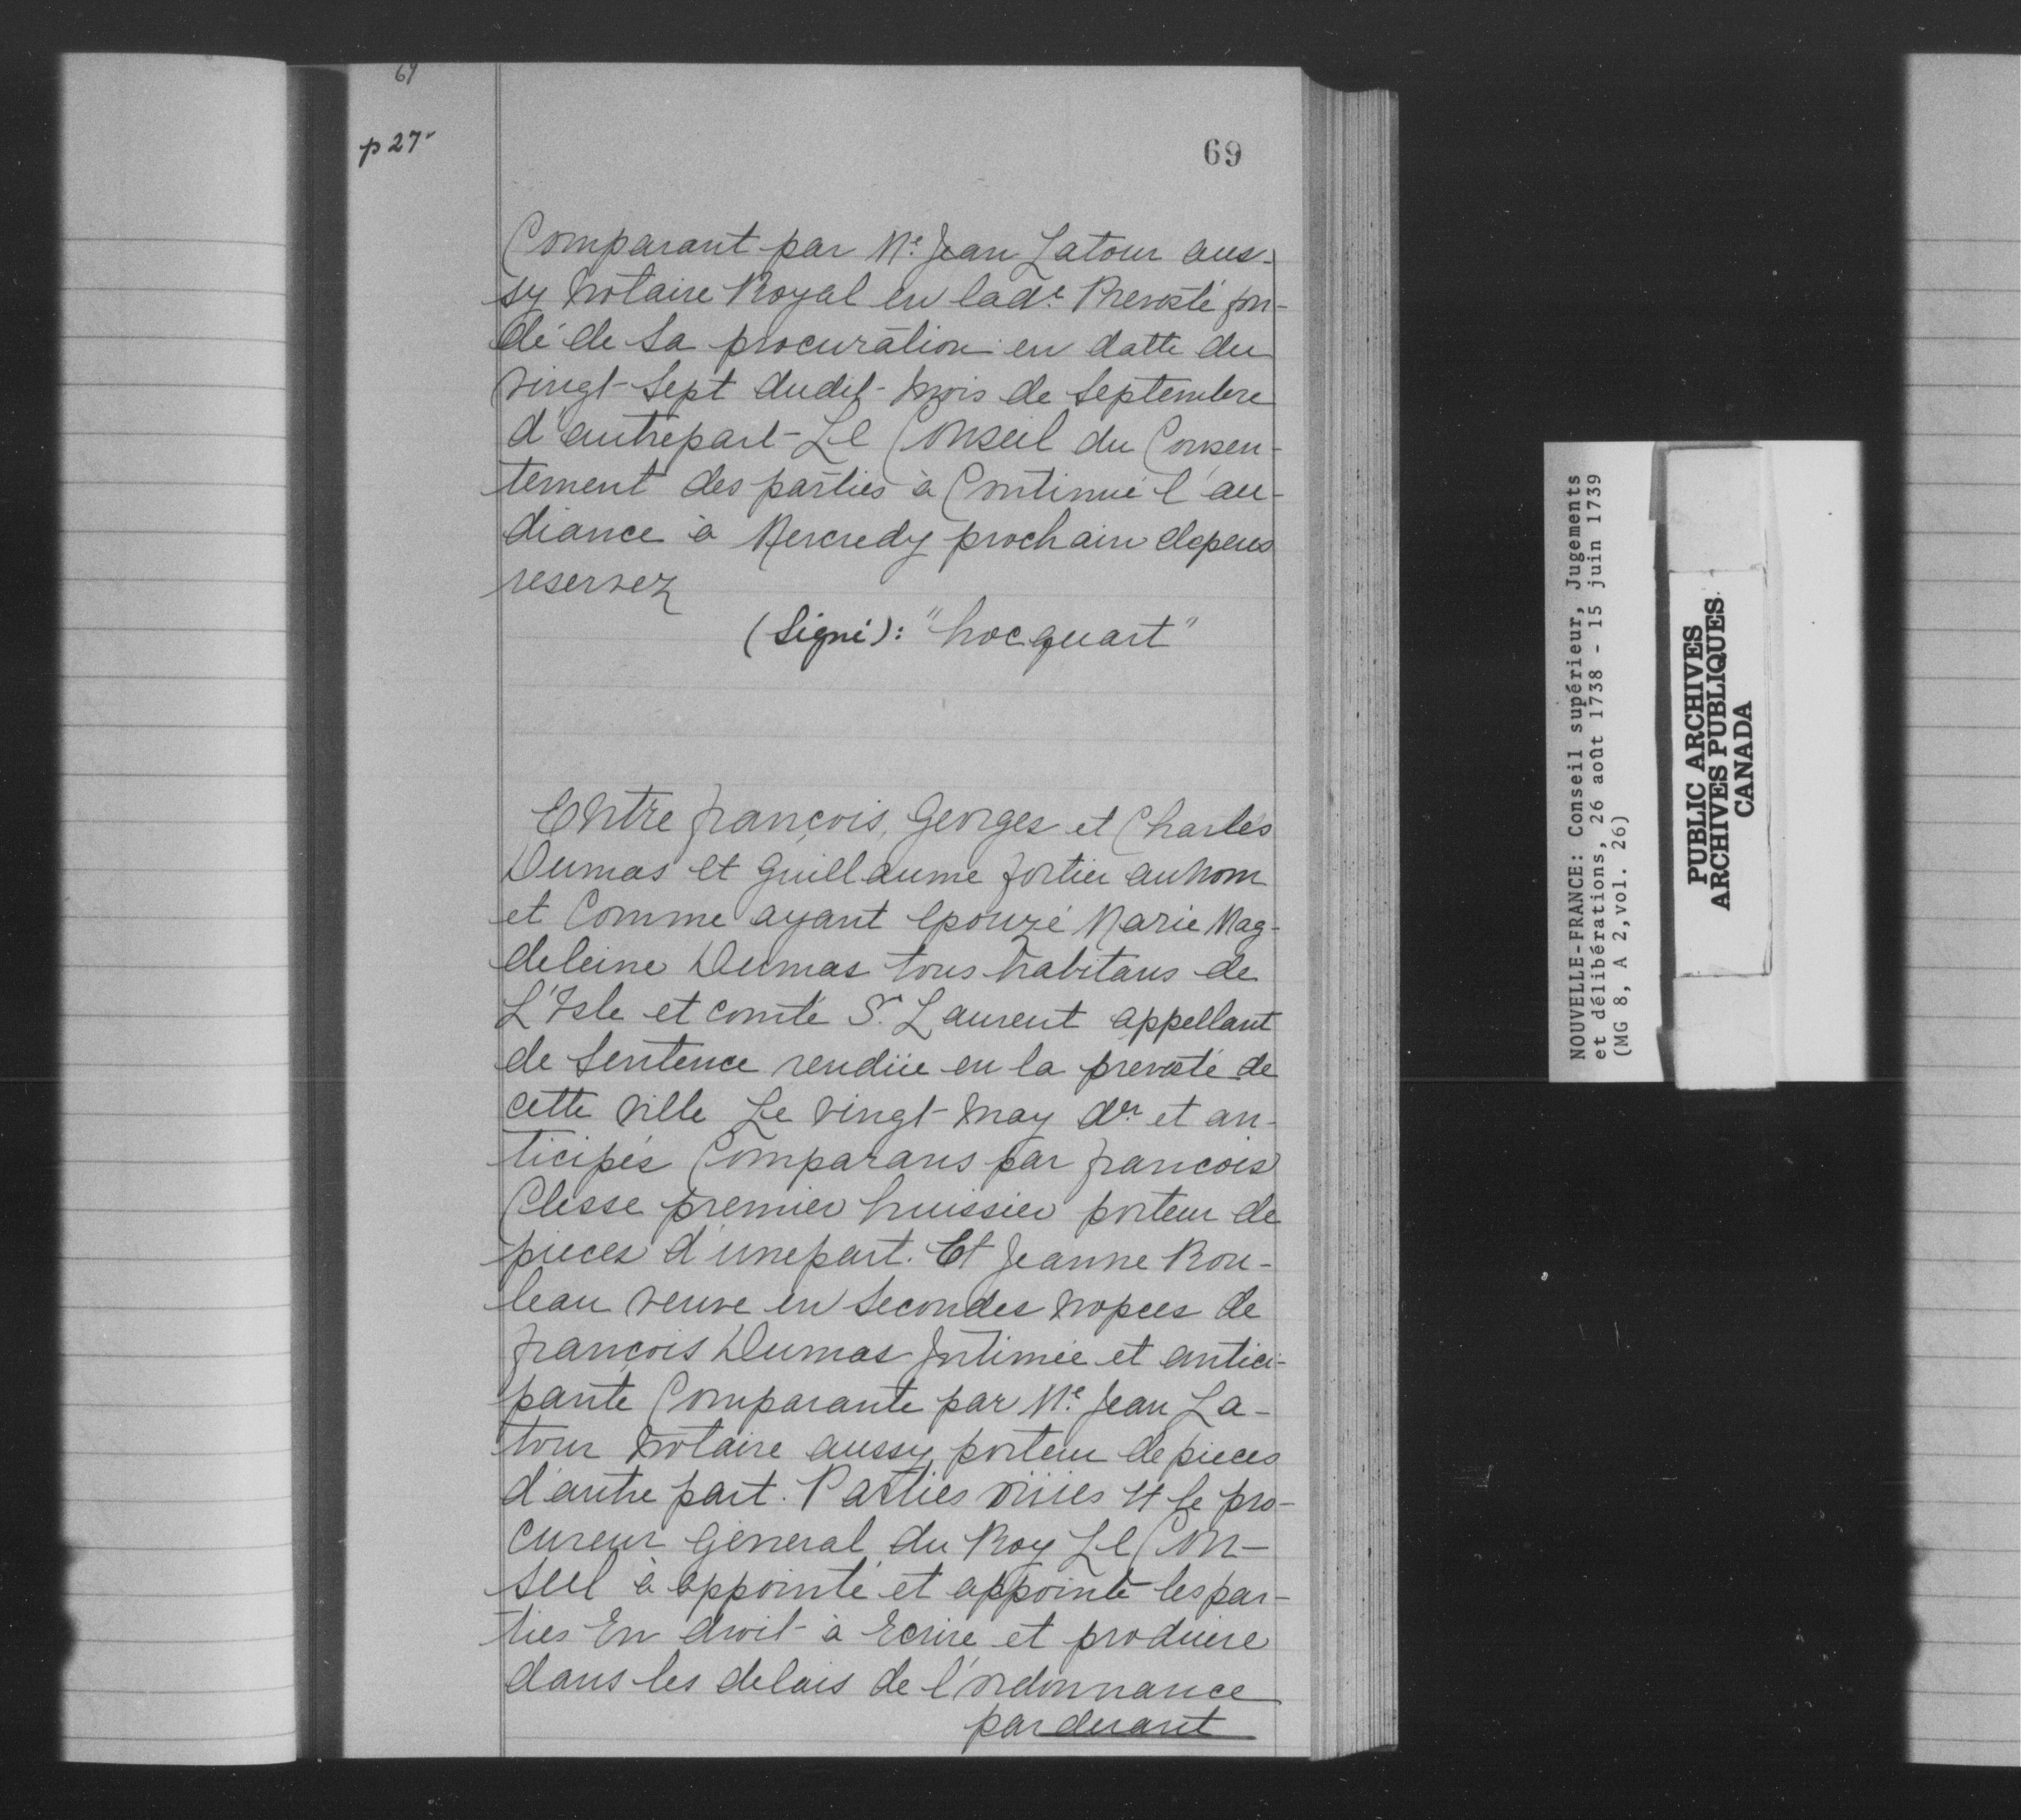 69
p 27v
69
Comparant par Me. Jean Latour aus-
sy Notaire Royal en lade. Prevosté fon-
dé de sa procuration en datte du
vingt-sept dudit mois de Septembre
d'autrepart Le Conseil du Consen-
tement des parties à Continué l'au-
diance à Mercredy prochain depens
reservez
(Signé): "hocquart"
Entre françois, Georges et Charles
Dumas et Guillaume fortier au nom
et Comme ayant epouzé Marie Mag-
deleine Dumas tous habitans de
L'Isle et comté St. Laurent appellant
de Sentence rendüe en la prevosté de
cette ville Le vingt May der et an-
ticipés Comparans par francois
Clesse premier huissier porteur de
pieces d'unepart. Et Jeanne Rou-
leau veuve en secondes nopces de
françois Dumas Intimée et antici-
pante Comparante par Me. Jean La-
tour Notaire aussy porteur de pieces
d'autre part. Parties oüies et le pro-
cureur General du Roy Le Con-
seil à appointé et appointe les par-
ties En droit à Ecrire et produire
dans les delais de l'ordonnance
pardevant
NOUVELLE-FRANCE: Conseil supérieur, Jugements
et délibérations, 26 août 1738 - 15 juin 1739
(MG 8, A 2, vol. 26)
PUBLIC ARCHIVES
ARCHIVES PUBLIQUES
CANADA